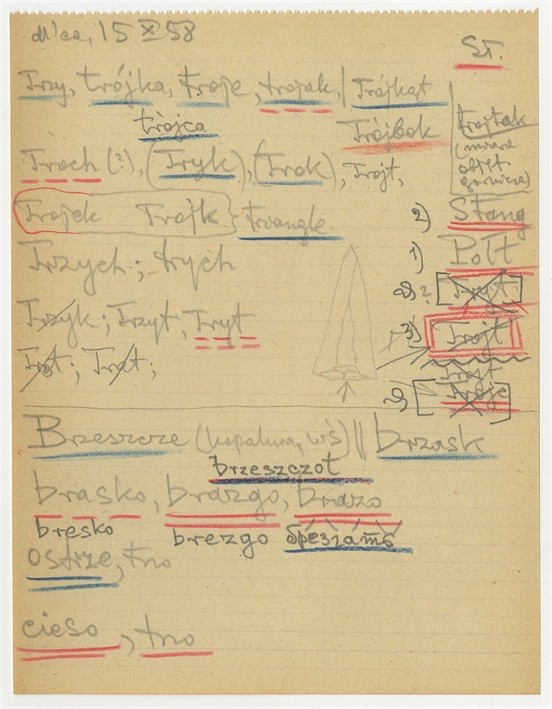 15 X 58
ST.
Trzy, trójka, troje, trojak, | Trójkąt
trójca
Trójbok
trojtak
Troch (?), (Tryk), (Trok), Trójt,
Trójek Trójk
triangle
2) Stang
Trzych; trych
1) Pott
Trzyk; Trzyt, Tryt
3) Trójt
Trot; Trat;
Brzeszcze (kopalnia, wś) || brzask
brzeszczot
brasko, brazgo, brazo
bresko brezgo
ostrze, tno
cieso, tno